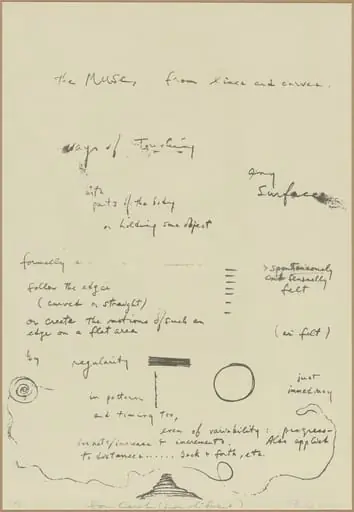 the MUSE, from lines and curves.
ways of Touching
any
Surface
with
parts of the body
or holding some object
formally a
> spontaneously
and sensually
felt
follow the edges
(curved or straight)
or create the motions of such an
edge on a flat area
(as felt)
by regularity
just
immediacy
in pattern
and timing too,
even of variability: progress-
increments. Also applied
to distances...... back & forth, etc.
for